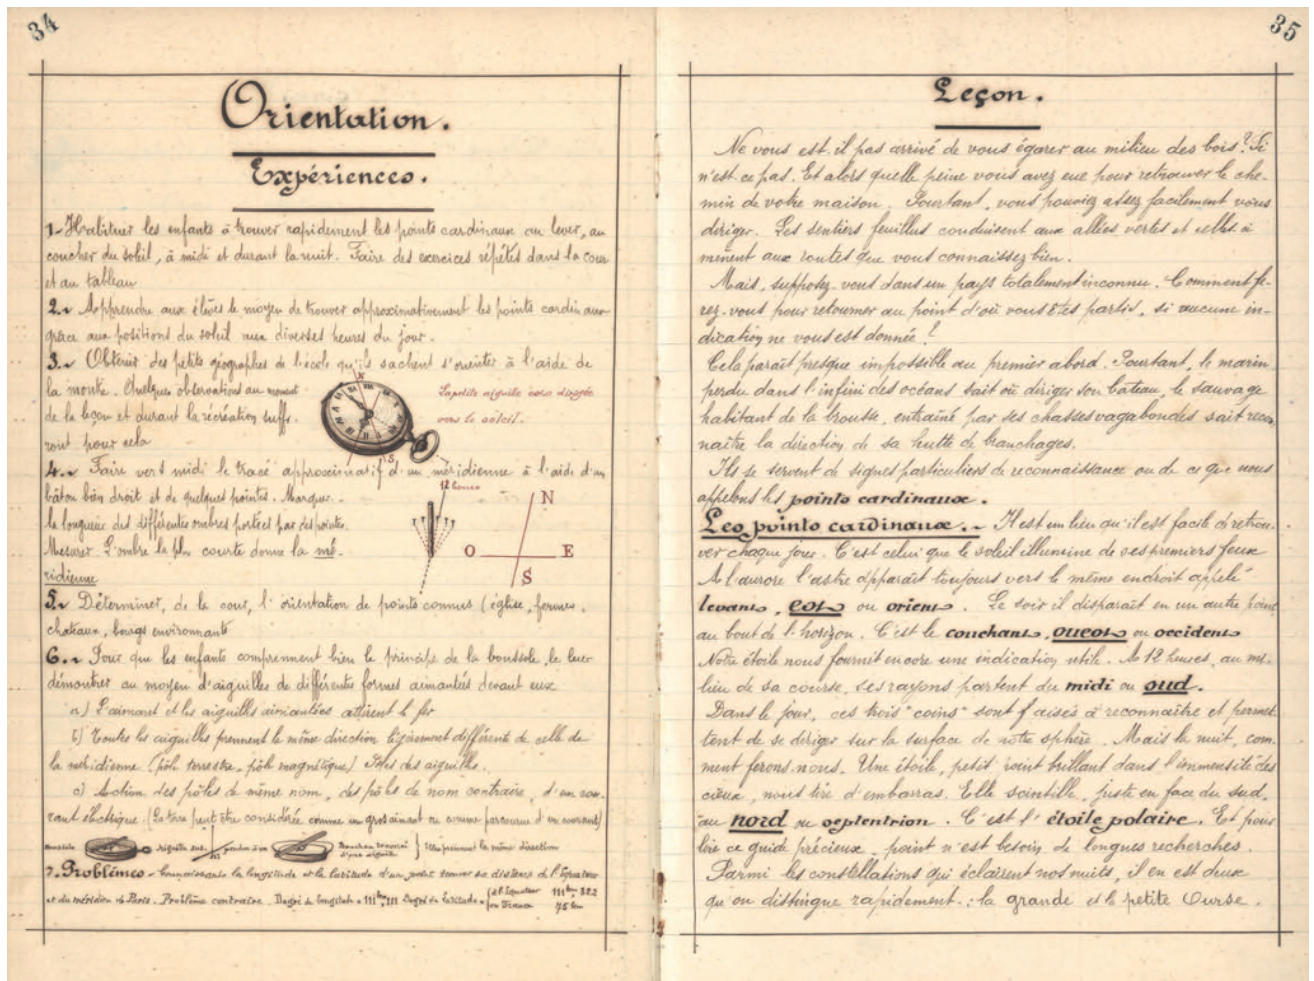 34
Orientation.
Expériences.
1.- Habituer les enfants à trouver rapidement les points cardinaux au lever, au
coucher du soleil, à midi et durant la nuit. Faire des exercices répétés dans la cour
et au tableau
2.- Apprendre aux élèves le moyen de trouver approximativement les points cardinaux
grâce aux positions du soleil aux diverses heures du jour.
3.- Obtenir des petits géographes de l'école qu'ils sachent s'orienter à l'aide de
la montre. Quelques observations au moment
de la leçon et durant la récréation suffi-
ront pour cela
La petite aiguille sera dirigée
vers le soleil.
N
S
4.- Faire vers midi le tracé approximatif d'un méridienne à l'aide d'un
bâton bien droit et de quelques pointes. Marquer
la longueur des différentes ombres portées par des pointes.
Mesurer. L'ombre la plus courte donne la mé-
ridienne
12 heures
N
O E
S
5.- Déterminer, de la cour, l'orientation de points connus (église, fermes,
chateaux, bourgs environnants
6.- Pour que les enfants comprennent bien le principe de la boussole, le leur
démontrer au moyen d'aiguilles de différentes formes aimantées devant eux
a) L'aimant et les aiguilles aimantées attirent le fer
b) Toutes les aiguilles prennent la même direction légèrement différente de celle de
la méridienne (pôle terrestre, pôle magnétique) Pôles des aiguilles.
c) Action des pôles de même nom, des pôles de nom contraire, d'un cou-
rant électrique. (La terre peut être considérée comme un gros aimant ou comme parcourue d'un courant)
Boussole aiguille sus- pendue à un fil Bouchon traversé d'une aiguille } Elles prennent la même direction
7.- Problèmes - Connaissant la longitude et la latitude d'un point trouver sa distance de l'Equateur
et du méridien de Paris. Problème contraire. Degré de longitude = 111 km 111 Degré de latitude = (à l'Equateur 111 km 322
(en France 75 km
35
Leçon.
Ne vous est-il pas arrivé de vous égarer au milieu des bois? Si
n'est-ce pas. Et alors quelle peine vous avez eue pour retrouver le che-
min de votre maison. Pourtant, vous pouviez assez facilement vous
diriger. Les sentiers feuillus conduisent aux allées vertes et celles-ci
mènent aux routes que vous connaissez bien.
Mais, supposez-vous dans un pays totalement inconnu. Comment fe-
rez-vous pour retourner au point d'où vous êtes partis, si aucune in-
dication ne vous est donnée?
Cela paraît presque impossible au premier abord. Pourtant, le marin
perdu dans l'infini des océans sait où diriger son bateau, le sauvage
habitant de la brousse, entraîné par ses chasses vagabondes sait recon-
naître la direction de sa hutte de branchages.
Ils se servent de signes particuliers de reconnaissance ou de ce que nous
appelons les points cardinaux.
Les points cardinaux.- Il est un lieu qu'il est facile de retrou-
ver chaque jour. C'est celui que le soleil illumine de ses premiers feux
A l'aurore l'astre apparaît toujours vers le même endroit appelé
levant, est ou orient. Le soir il disparaît en un autre point
au bout de l'horizon. C'est le couchant, ouest ou occident
Notre étoile nous fournit encore une indication utile. A 12 heures, au mi-
lieu de sa course, ses rayons partent du midi ou sud.
Dans le jour, ces trois "coins" sont aisés à reconnaître et permet-
tent de se diriger sur la surface de notre sphère. Mais la nuit, com-
ment ferons-nous. Une étoile, petit point brillant dans l'immensité des
cieux, nous tire d'embarras. Elle scintille, juste en face du sud,
au nord ou septentrion. C'est l'étoile polaire. Et pour
lire ce guide précieux, point n'est besoin de longues recherches.
Parmi les constellations qui éclairent nos nuits, il en est deux
qu'on distingue rapidement: la grande et la petite Ourse.